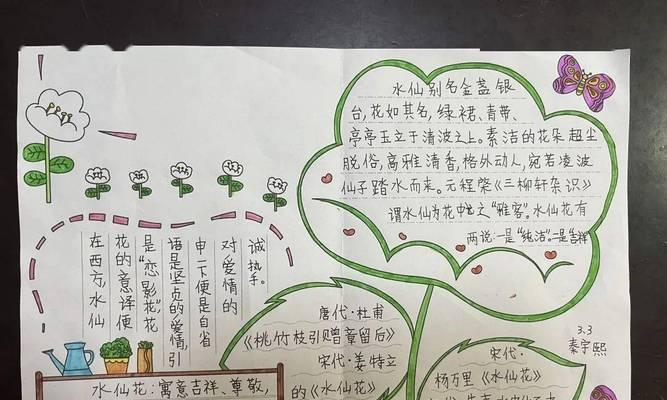 水仙别名金盏银
台,花如其名,绿裙、青带,
亭亭玉立于清波之上。素洁的花朵超尘
脱俗,高雅清香,格外动人,宛若凌波
仙子踏水而来。元程棨《三柳轩杂识》
谓水仙为花中之“雅客”。水仙花有
两说:一是“纯洁”。二是“吉祥
在西方,水仙
花的意译便
是“恋影花”,花
语是坚贞的爱情,引
申一下便是自省
对爱情的
诚挚。
唐代·杜甫
《桃竹枝引赠章留后》
宋代·姜特立
的《水仙花》
3.3
秦宇熙
宋代·
杨万里《水仙花》
水仙花:寓意吉祥、尊敬,